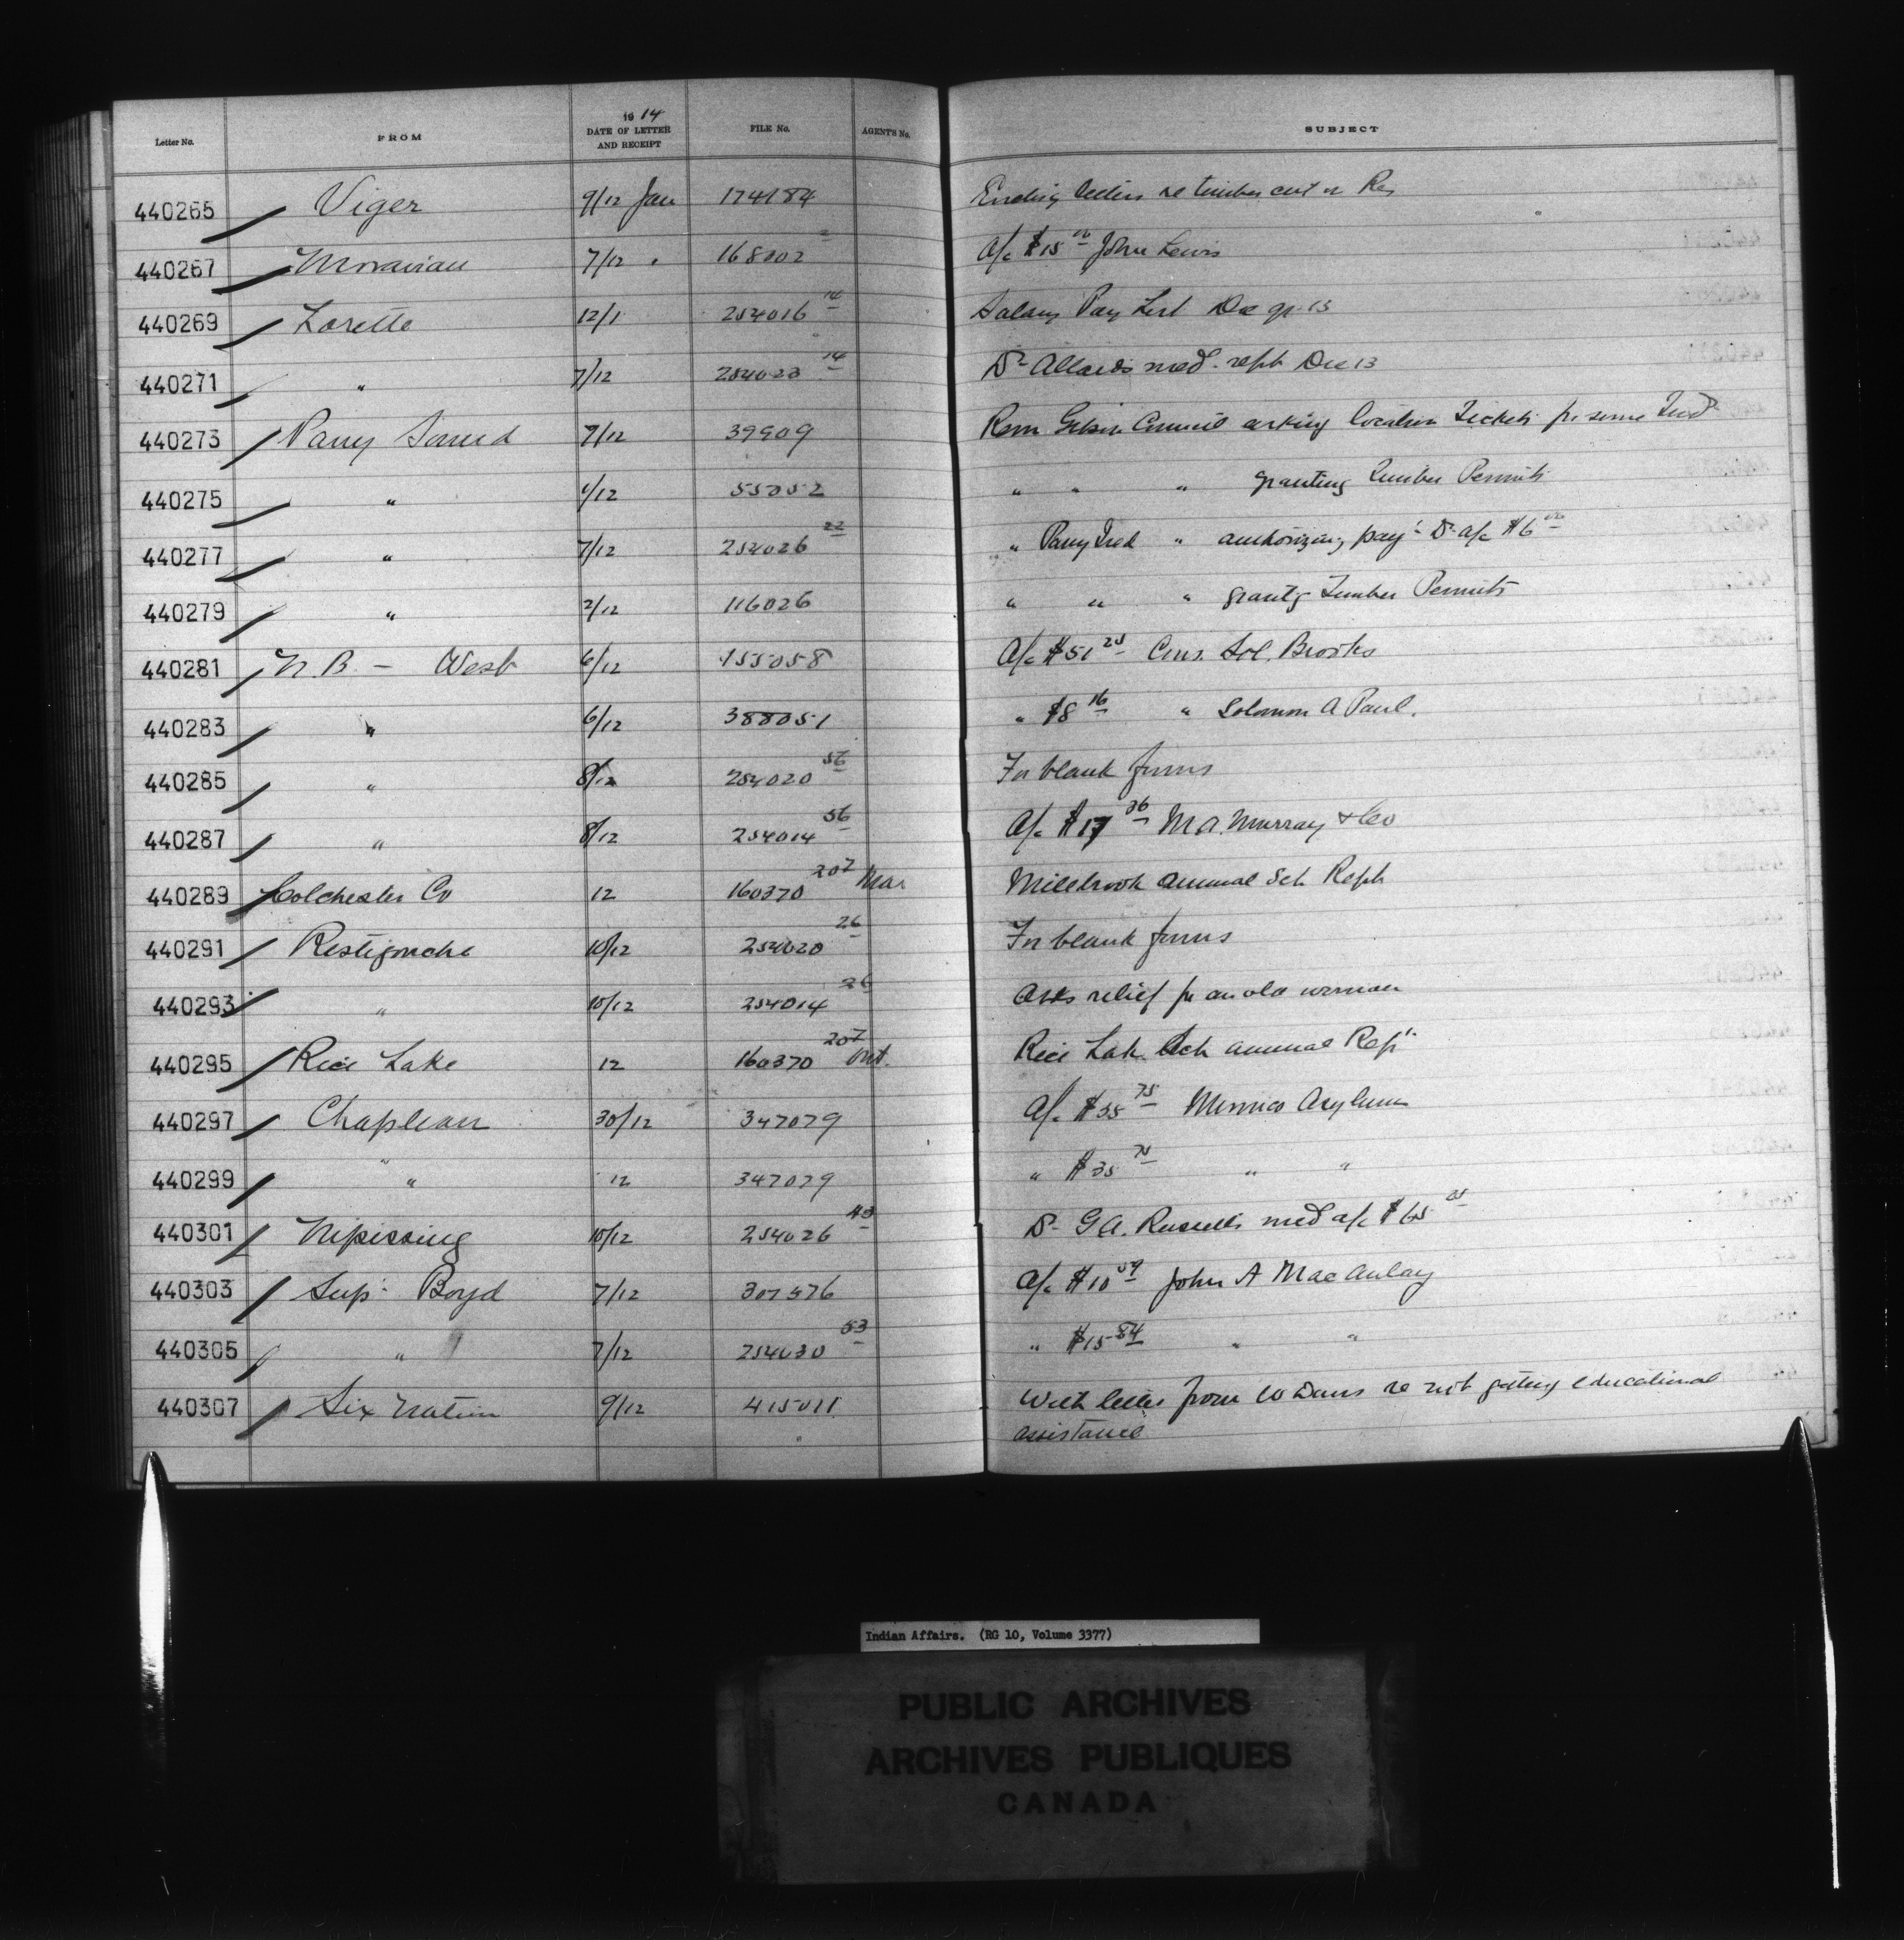 Letter No. FROM 1914 DATE OF LETTER AND RECEIPT FILE No. AGENT'S No. SUBJECT
440265 Viger 9/12 Jan 174184 letters re timber cut on Res
440267 Moravian 7/12 " 168002 2 A/c $15 00 John Lewis
440269 Lorette 12/1 254016 14 Salary Pay List Dec qr 13
440271 " 7/12 254023 14 Dr Allards med. rept Dec 13
440273 Parry Sound 7/12 39909 Resn Gibson Council asking location Tickets for some Inds
440275 " /12 55052 " " " granting Timber Permits
440277 " 7/12 254026 22 " Parry Isld " authorizing pay't Dr a/c $6 00
440279 " 2/12 116026 " " " grantg Timber Permits
440281 N.B. - West 6/12 155058 A/c $51 25 Cons. Sol. Brooks
440283 " 6/12 388051 " $8 16 " Solomon A Paul.
440285 " 8/12 254020 56 For blank forms
440287 " 8/12 254014 56 A/c $17 36 M.A. Murray & Co
440289 Colchester Co 12 160370 207 Mar Millbrook annual Sch Rept
440291 Restigouche 10/12 254020 26 For blank forms
440293 " 10/12 254014 26 Asks relief for an old woman
440295 Rice Lake 12 160370 207 Ont. Rice Lake Sch annual Rept
440297 Chapleau 30/12 347079 A/c $35 75 Mimico Asylum
440299 " 12 347079 " $35 75 " "
440301 Nipissing 10/12 254026 43 Dr G.A. Russells med a/c $65
440303 Supt. Boyd 7/12 307576 A/c $10 09 John A MacAulay
440305 " 7/12 254030 53 " $15 84 " "
440307 Six Nation 9/12 415011 With letter from W Davis re not getting educational
assistance
Indian Affairs. (RG 10, Volume 3377)
PUBLIC ARCHIVES
ARCHIVES PUBLIQUES
CANADA